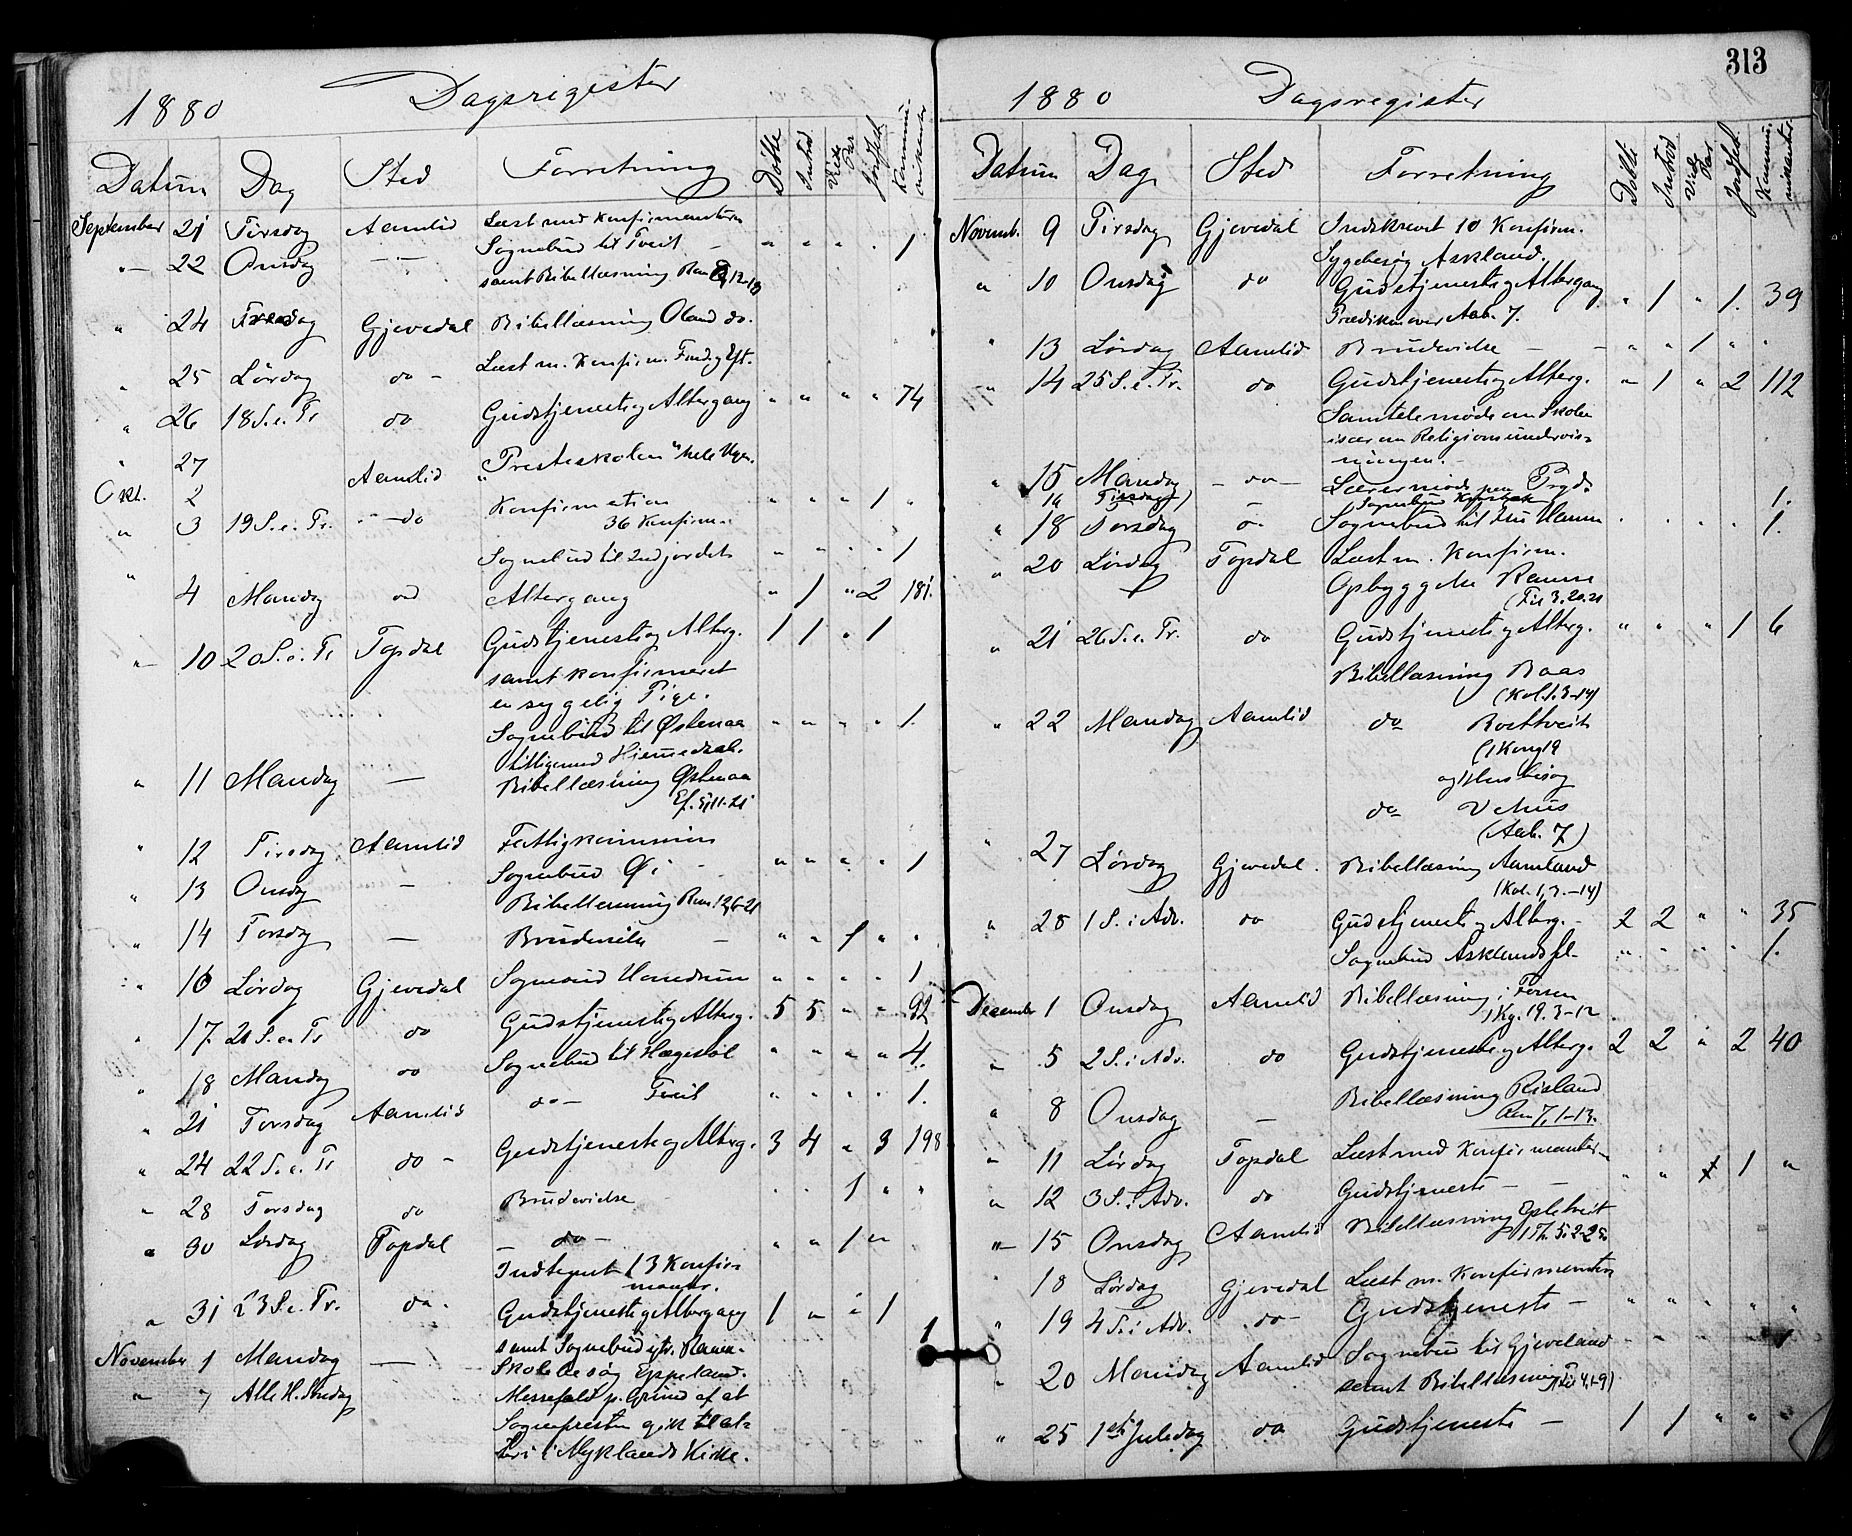 1880 Dagsregister
Datum Dag Sted Forretning Døbte Introd Viede Par Jordfæst. Kommunikanter
September 21 Tirsdag Aamlid Læst med Konfirmanterne
Sognebud til Tveit " " " . 1
"- 22 Onsdag -"- samt Bibellæsning Rom 12-13
" 24 Fredag Gjevedal Bibellæsning Oland do.
" 25 Lørdag do - Læst m. Konfirm. Ford. og Eft.
" 26 18 S. e. Tr do Gudstjeneste og Altergang " " " " 74
" 27
Aamlid "Presteskolen" hele Ugen.
Okt. 2
" 3 19 S. e. Tr. -do Konfirmation " " " 1 "
36 Konfirm.
Sognebud til " " " " 1
" 4 Mandag do Altergang " 1 " 2 181.
"- 10 20 S. e. Tr Topdal Gudstjeneste og Alterg. 1 1 " 1
samt konfirmeret
en sygelig Pige.
Sognebud til Østenaa " " " " 1.
tilligemed
" 11 Mandag — Bibellæsning Østenaa
Ef. 11-21
" 12 Tirsdag Aamlid Fattigkommission
" 13 Onsdag — Sognebud Øi " " " " 1
Bibellæsning Rom 12, 6-21
" 14 Torsdag — Brudevielse — " " 1 " "
" 16 Lørdag Gjevedal Sognebud " " " " 1
" 17 21 S. e. Tr do Gudstjeneste og Alterg. 5 5 " " 92
" 18 Mandag do Sognebud til Hægestøl " " " " 4.
" 21 Torsdag Aamlid do - Tveit " " " " 1.
" 24 22 S. e. Tr do - Gudstjeneste og Alterg. 3 4 " 3 198
" 28 Torsdag do Brudevielse . . 1 " "
" 30 Lørdag Topdal - do - " " 1 "
Indtegnet 13 Konfirmanter.
" 31 23 S. e. Tr. do. Gudstjeneste og Altergang 1 " " 1
samt Sognebud 1
November 1 Mandag — Skolebesøg Eppeland.
" 7 Alle H. Søndag Messefald p. Grund af at
Sognepresten gik til alters i Myklands Kirke.
313
1880 Dagsregister
Datum Dag Sted Forretning Døbte Introd Viede Par Jordfæst. Kommunikanter
Novemb. 9 Tirsdag Gjevedal Indskrevet 10 Konfirm.
Sygebesøg Askland.
" 10 Onsdag do Gudstjeneste og Altergang " 1 " 1. 39
Prædiken over Aab. 7.
" 13 Lørdag Aamlid Brudevielse — " " 1 " "
" 14 25 S. e. Tr. do Gudstjeneste og Alterg. " 1 " 2 112
Samtalemøde om Skolen
især om Religionsundervisningen.
" 15 Mandag - do - Lærermøde paa Prgd.
16 Tirsdag — Sognebud 1.
" 18 Torsdag Sognebud til . . . . 1.
" 20 Lørdag Topdal Læst m. Konfirm.
Opbyggelse Ramse
(Fil 3. 20. 21
" 21 26 S. e. Tr. do Gudstjeneste og Alterg. " " " 1 6
Bibellæsning Baas
(Kol. 1. 3-14)
" 22 Mandag Aamlid do
(1 Kong 19
og Husbesøg
do Vehus
(Aab. 7)
" 27 Lørdag Gjevedal. Bibellæsning Aamland
(Kol. 1, 3.-14)
" 28 1 S. i Adv. do Gudstjeneste og Alterg. - 2 2 " " 35
Sognebud " " " " 1.
December 1 Onsdag Aamlid Bibellæsning i
1 Kg. 19. 3-12
" 5 2 S. i Adv. do Gudstjeneste og Alterg. 2 2 " 2 40
" 8 Onsdag — Bibellæsning Risland
Rom 7, 1-13.
" 11 Lørdag Topdal Læst med Konfirmanter
" 12 3 S. i Adv. do Gudstjeneste — " " 1 "
" 15 Onsdag Aamlid Bibellæsning Epletveit
" 18 Lørdag Gjevedal Læst m. Konfirmanten
" 19 4 S. i Adv. do- Gudstjeneste - " " " " "
" 20 Mandag Aamlid Sognebud til Gjeveland " " " — 1
samt Bibellæsning
" 25 1ste Juledag do Gudstjeneste — 1 1 " " "